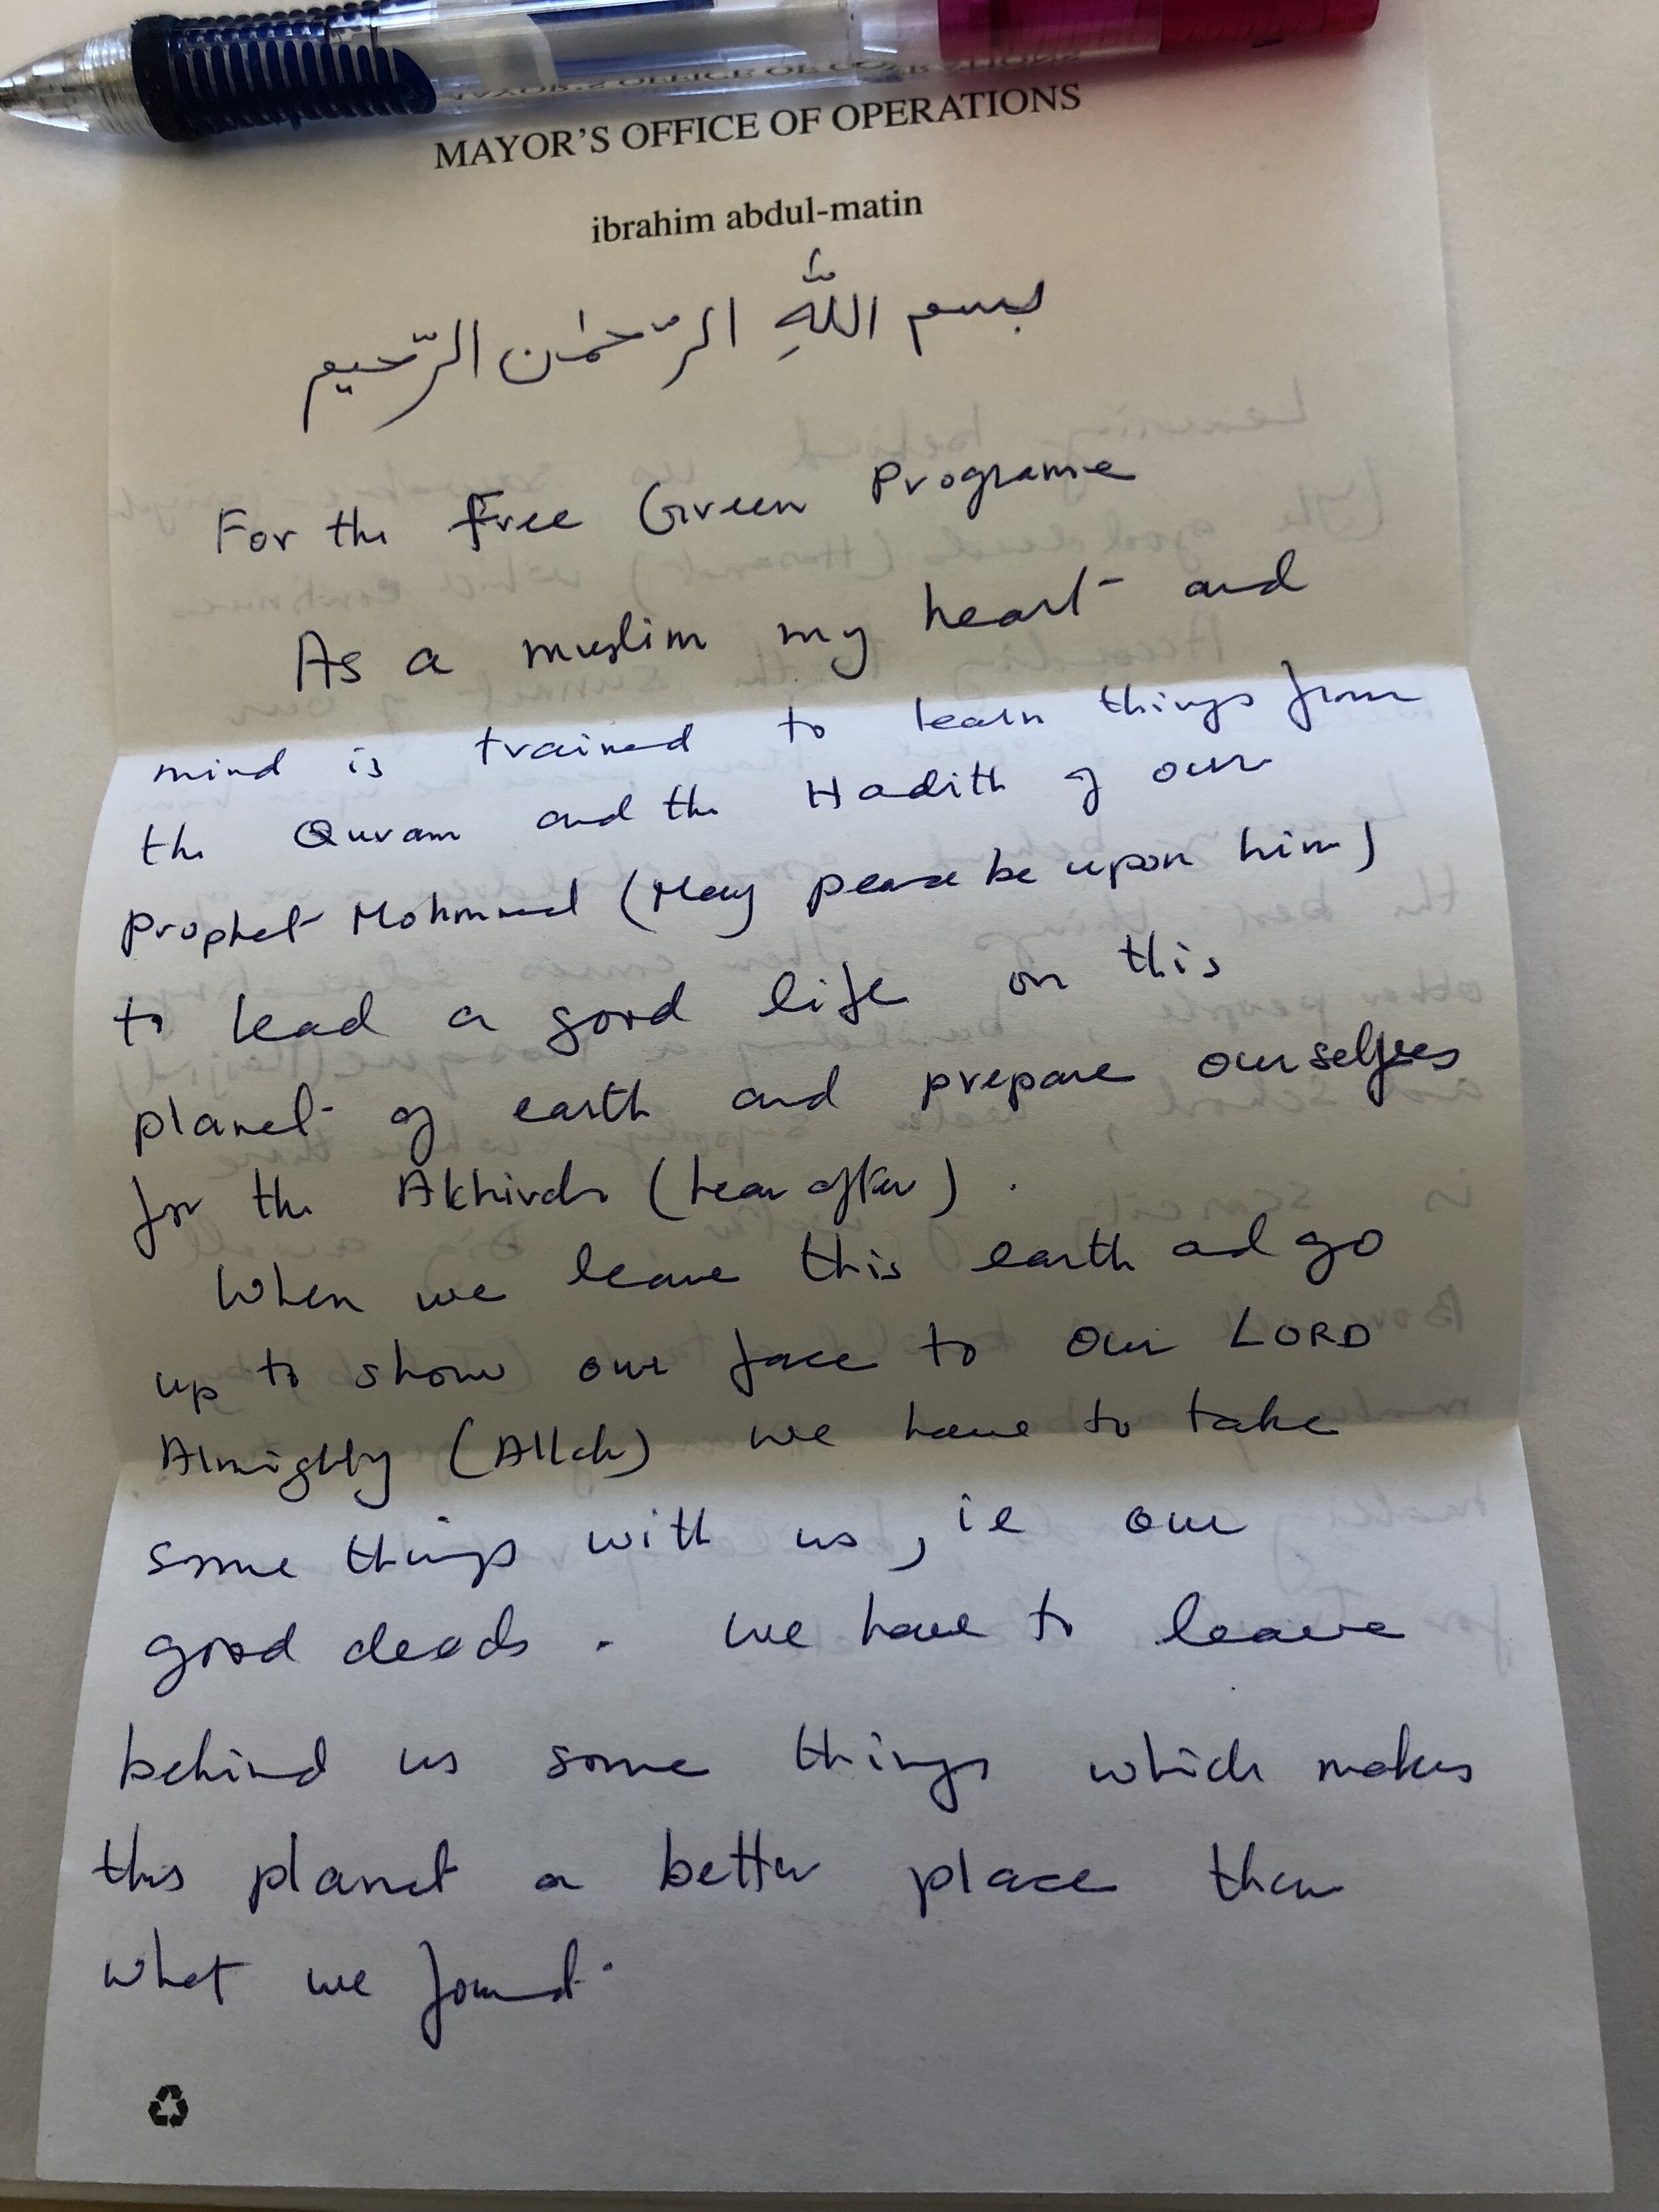 MAYOR'S OFFICE OF OPERATIONS
ibrahim abdul-matin
بسم اللّٰهِ الرّحمٰن الرّحیم
For the Free Green Programe
As a muslim my heart and
mind is trained to learn things from
the Quran and the Hadith of our
Prophet Mohmmed (May peace be upon him)
to lead a good life on this
planet of earth and prepare ourselves
for the Akhirah (hear after).
When we leave this earth ad go
up to show our face to our LORD
Almighty (Allah) we have to take
some things with us, ie our
good deeds. We have to leave
behind us some things which makes
this planet a better place than
what we found.